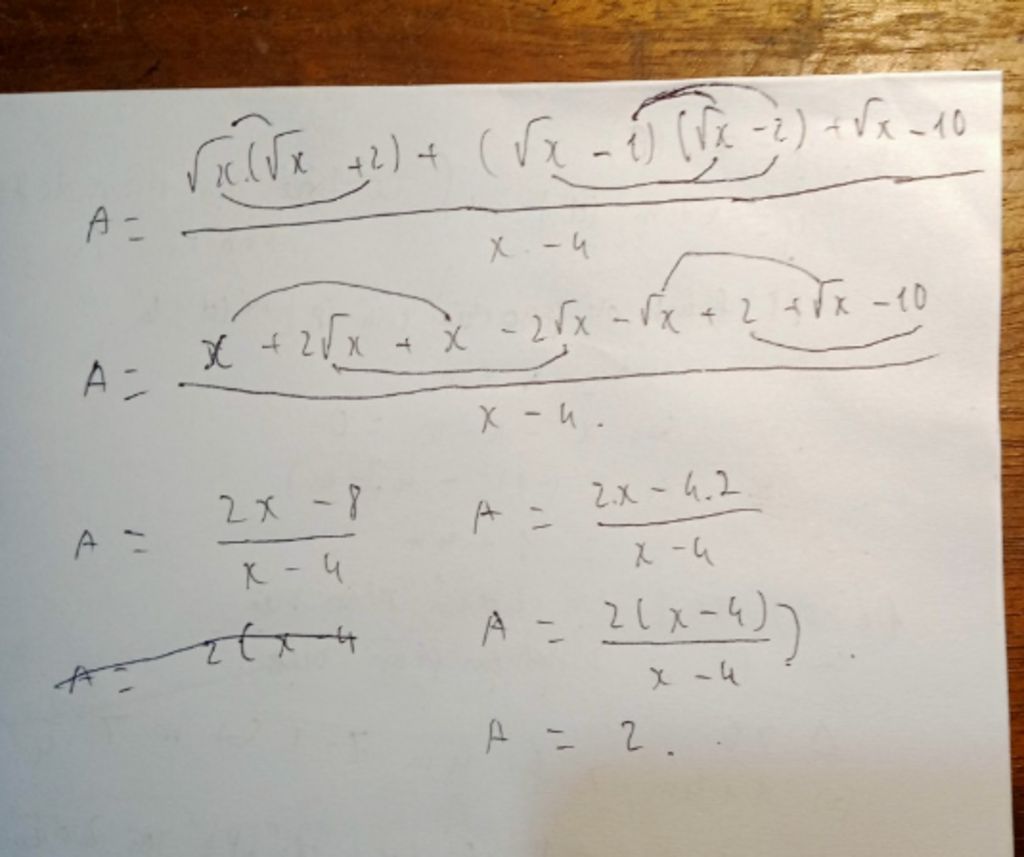 A = (√x.(√x + 2) + (√x - 1)(√x - 2) + √x - 10) / (x - 4)
A = (x + 2√x + x - 2√x - √x + 2 + √x - 10) / (x - 4).
A = (2x - 8) / (x - 4)
A = (2.x - 4.2) / (x - 4)
A = 2(x - 4
A = 2(x - 4) / (x - 4)
A = 2.